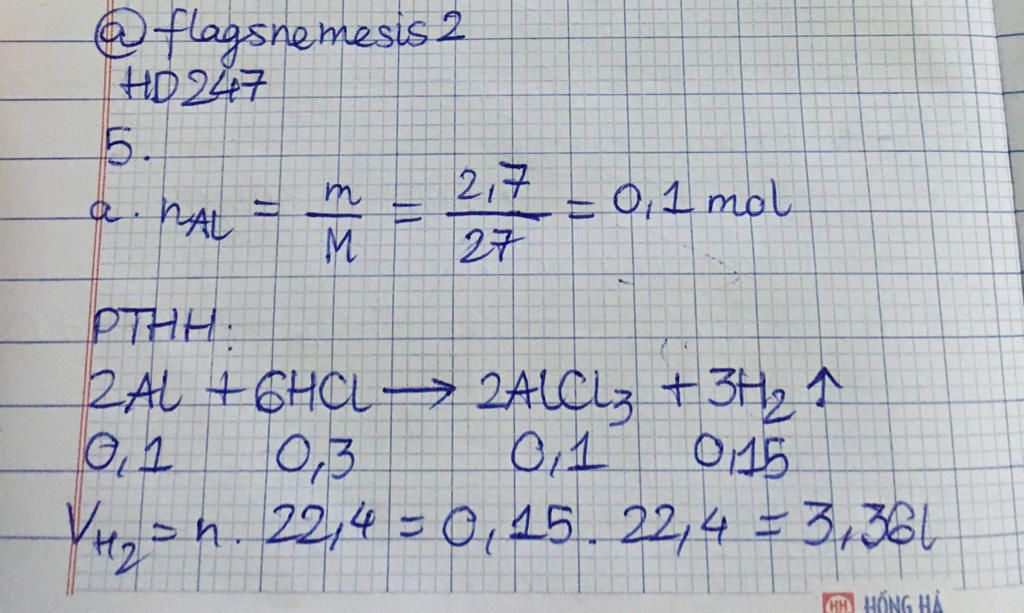 @flagsnemesis2
HD247
5.
a. nAl = m/M = 2,7/27 = 0,1 mol
PTHH:
2Al + 6HCl → 2AlCl₃ + 3H₂ ↑
0,1 0,3 0,1 0,15
V_H₂ = n. 22,4 = 0,15. 22,4 = 3,36l
HH HỒNG HÀ